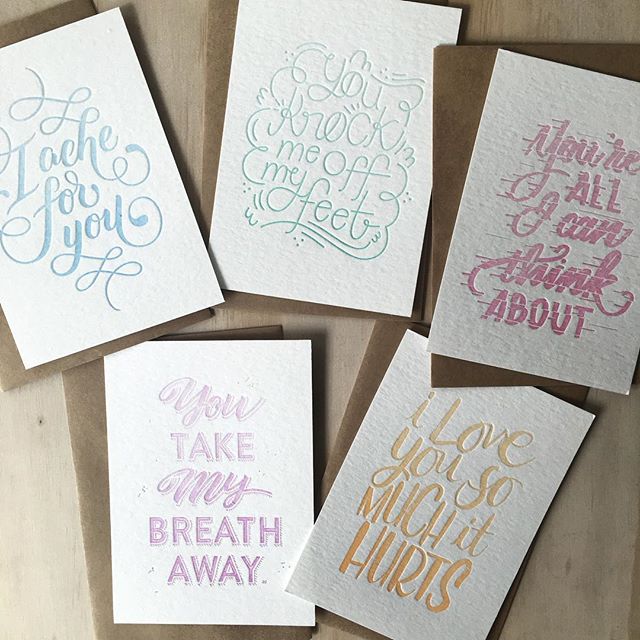 I ache
for
you
You
knock
me off
my
feet
You're
ALL
I can
think
ABOUT
You
TAKE
My
BREATH
AWAY.
i Love
you so
MUCH it
HURTS